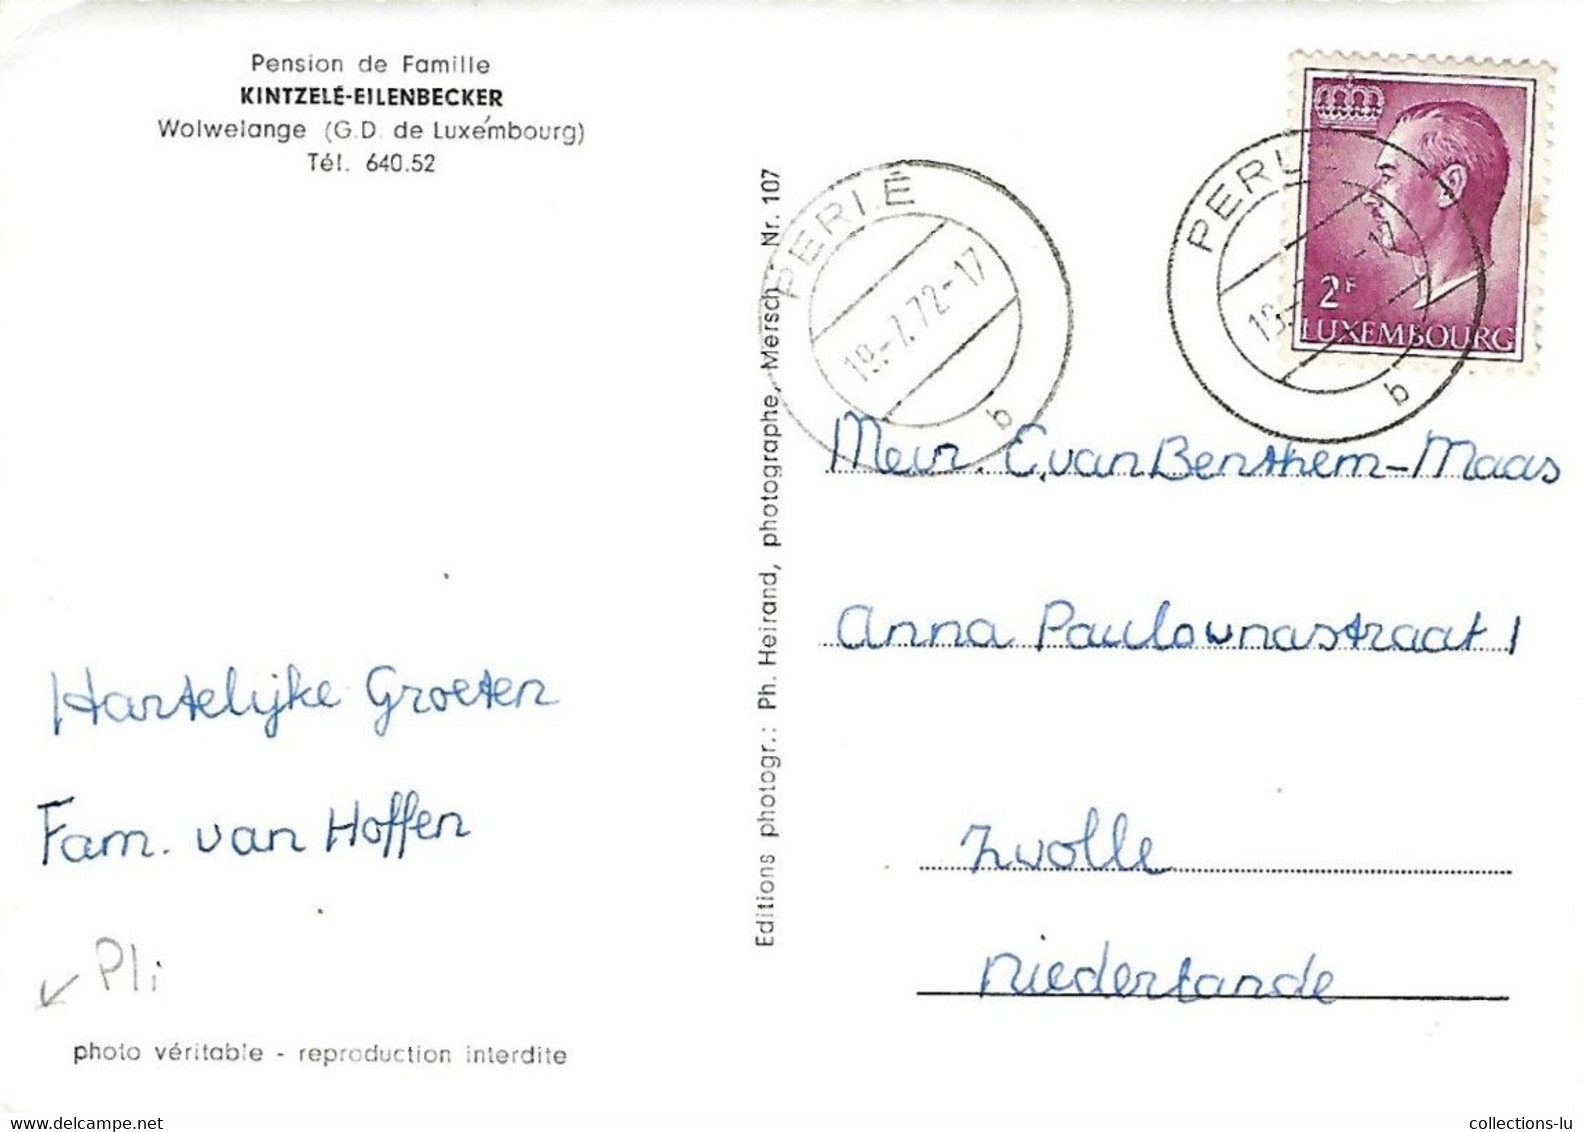 Pension de Famille
KINTZELÉ-EILENBECKER
Wolwelange (G.D. de Luxembourg)
Tél. 640.52
Hartelijke Groeten
Fam. van Hoffen
Pli
photo véritable - reproduction interdite
Editions photogr.: Ph. Heirand, photographe, Mersch - Nr. 107
PERLÉ
19.-7.72-17
b
PERLÉ
19.
b
2F
LUXEMBOURG
Mevr. C. van Benthem-Maas
Anna Paulownastraat 1
Zwolle
Niederlande
collections-lu